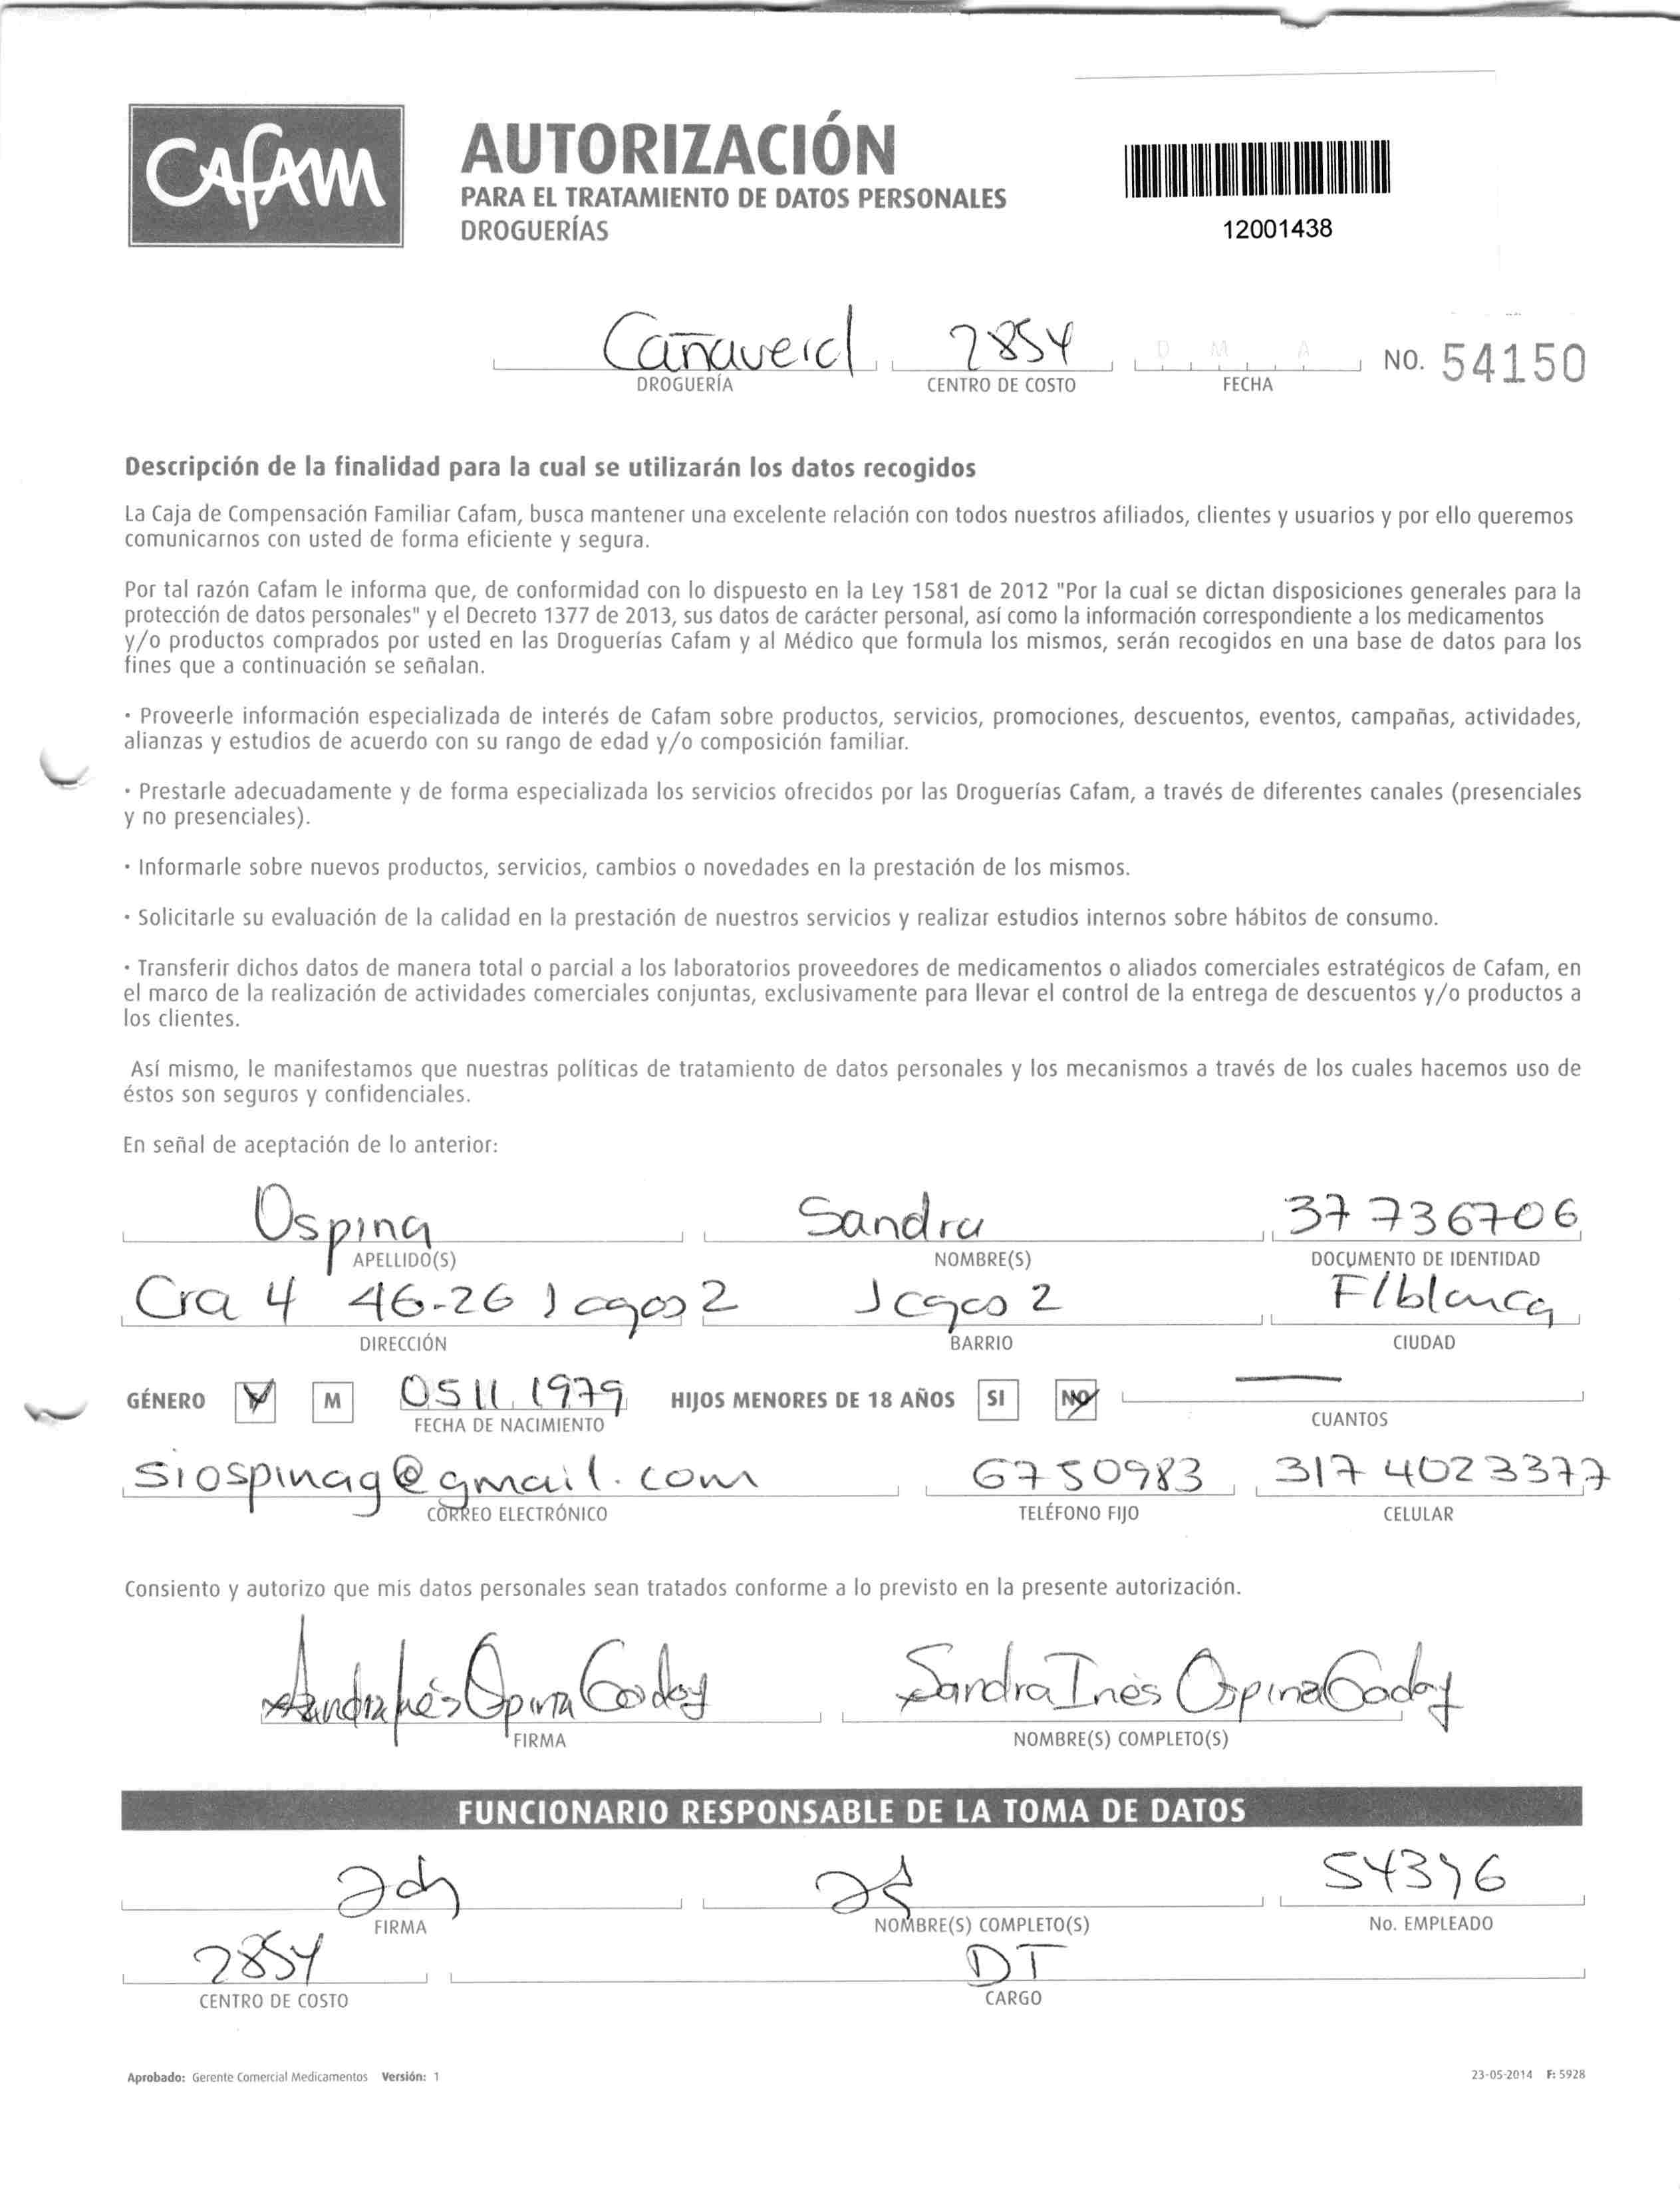 Cafam
AUTORIZACIÓN
PARA EL TRATAMIENTO DE DATOS PERSONALES
DROGUERÍAS
12001438
Cañaveral 2854 D M A NO. 54150
DROGUERÍA CENTRO DE COSTO FECHA
Descripción de la finalidad para la cual se utilizarán los datos recogidos
La Caja de Compensación Familiar Cafam, busca mantener una excelente relación con todos nuestros afiliados, clientes y usuarios y por ello queremos
comunicarnos con usted de forma eficiente y segura.
Por tal razón Cafam le informa que, de conformidad con lo dispuesto en la Ley 1581 de 2012 "Por la cual se dictan disposiciones generales para la
protección de datos personales" y el Decreto 1377 de 2013, sus datos de carácter personal, así como la información correspondiente a los medicamentos
y/o productos comprados por usted en las Droguerías Cafam y al Médico que formula los mismos, serán recogidos en una base de datos para los
fines que a continuación se señalan.
· Proveerle información especializada de interés de Cafam sobre productos, servicios, promociones, descuentos, eventos, campañas, actividades,
alianzas y estudios de acuerdo con su rango de edad y/o composición familiar.
· Prestarle adecuadamente y de forma especializada los servicios ofrecidos por las Droguerías Cafam, a través de diferentes canales (presenciales
y no presenciales).
· Informarle sobre nuevos productos, servicios, cambios o novedades en la prestación de los mismos.
· Solicitarle su evaluación de la calidad en la prestación de nuestros servicios y realizar estudios internos sobre hábitos de consumo.
· Transferir dichos datos de manera total o parcial a los laboratorios proveedores de medicamentos o aliados comerciales estratégicos de Cafam, en
el marco de la realización de actividades comerciales conjuntas, exclusivamente para llevar el control de la entrega de descuentos y/o productos a
los clientes.
Así mismo, le manifestamos que nuestras políticas de tratamiento de datos personales y los mecanismos a través de los cuales hacemos uso de
éstos son seguros y confidenciales.
En señal de aceptación de lo anterior:
Ospina Sandra 37 736706
APELLIDO(S) NOMBRE(S) DOCUMENTO DE IDENTIDAD
Cra 4 46-26 lagos 2 lagos 2 F/blanca
DIRECCIÓN BARRIO CIUDAD
GÉNERO F M 05 11 1979 HIJOS MENORES DE 18 AÑOS SI NO —
FECHA DE NACIMIENTO CUANTOS
siospinag@gmail.com 6750983 317 4023377
CORREO ELECTRÓNICO TELÉFONO FIJO CELULAR
Consiento y autorizo que mis datos personales sean tratados conforme a lo previsto en la presente autorización.
Sandra Inés Ospina Godoy Sandra Inés Ospina Godoy
FIRMA NOMBRE(S) COMPLETO(S)
FUNCIONARIO RESPONSABLE DE LA TOMA DE DATOS
54376
FIRMA NOMBRE(S) COMPLETO(S) No. EMPLEADO
2854 DT
CENTRO DE COSTO CARGO
Aprobado: Gerente Comercial Medicamentos Versión: 1 23-05-2014 F: 5928